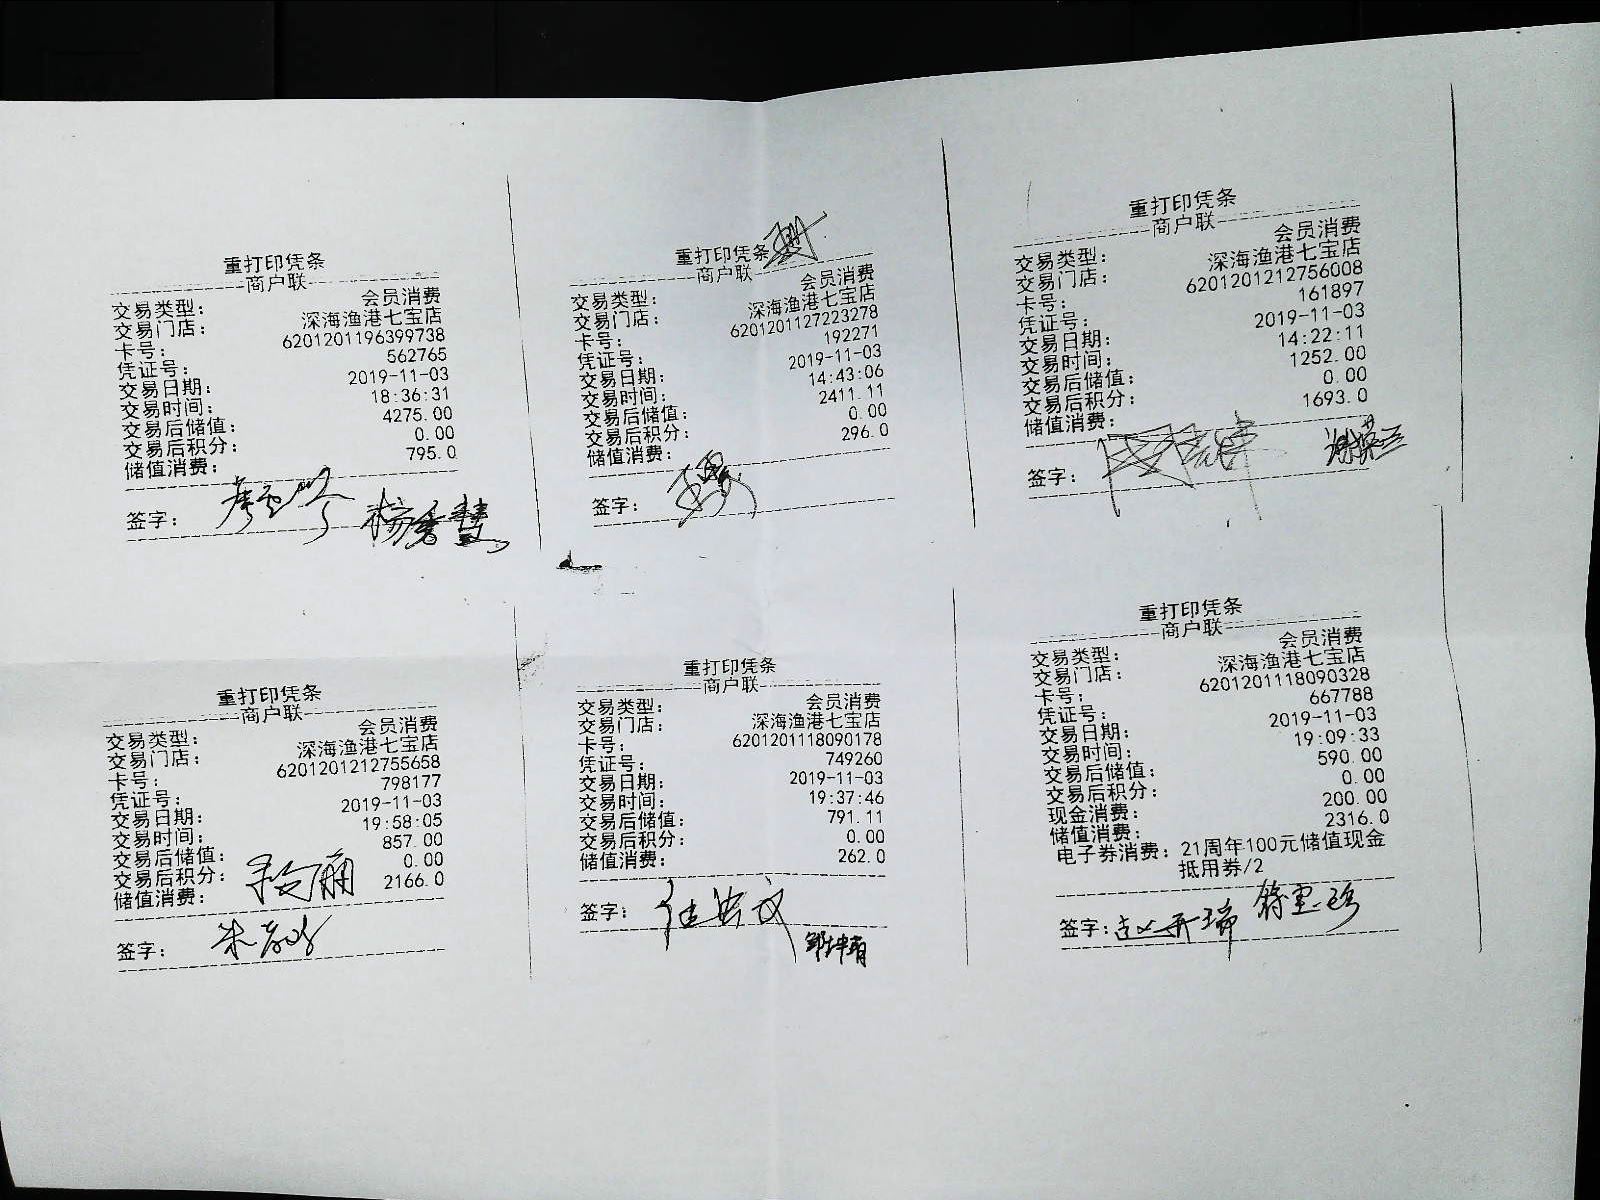 重打印凭条
商户联
交易类型： 会员消费
交易门店： 深海渔港七宝店
卡号： 6201201196399738
凭证号： 562765
交易日期： 2019-11-03
交易时间： 18:36:31
交易后储值： 4275.00
交易后积分： 0.00
储值消费： 795.0
签字： 杨秀慧
重打印凭条
商户联
交易类型： 会员消费
交易门店： 深海渔港七宝店
卡号： 6201201127223278
凭证号： 192271
交易日期： 2019-11-03
交易时间： 14:43:06
交易后储值： 2411.11
交易后积分： 0.00
储值消费： 296.0
签字：
重打印凭条
商户联
交易类型： 会员消费
交易门店： 深海渔港七宝店
卡号： 6201201212756008
凭证号： 161897
交易日期： 2019-11-03
交易时间： 14:22:11
交易后储值： 1252.00
交易后积分： 0.00
储值消费： 1693.0
签字：
重打印凭条
商户联
交易类型： 会员消费
交易门店： 深海渔港七宝店
卡号： 6201201212755658
凭证号： 798177
交易日期： 2019-11-03
交易时间： 19:58:05
交易后储值： 857.00
交易后积分： 0.00
储值消费： 2166.0
签字：
重打印凭条
商户联
交易类型： 会员消费
交易门店： 深海渔港七宝店
卡号： 6201201118090178
凭证号： 749260
交易日期： 2019-11-03
交易时间： 19:37:46
交易后储值： 791.11
交易后积分： 0.00
储值消费： 262.0
签字：
重打印凭条
商户联
交易类型： 会员消费
交易门店： 深海渔港七宝店
卡号： 6201201118090328
凭证号： 667788
交易日期： 2019-11-03
交易时间： 19:09:33
交易后储值： 590.00
交易后积分： 0.00
现金消费： 200.00
储值消费： 2316.0
电子券消费：21周年100元储值现金
抵用券/2
签字：